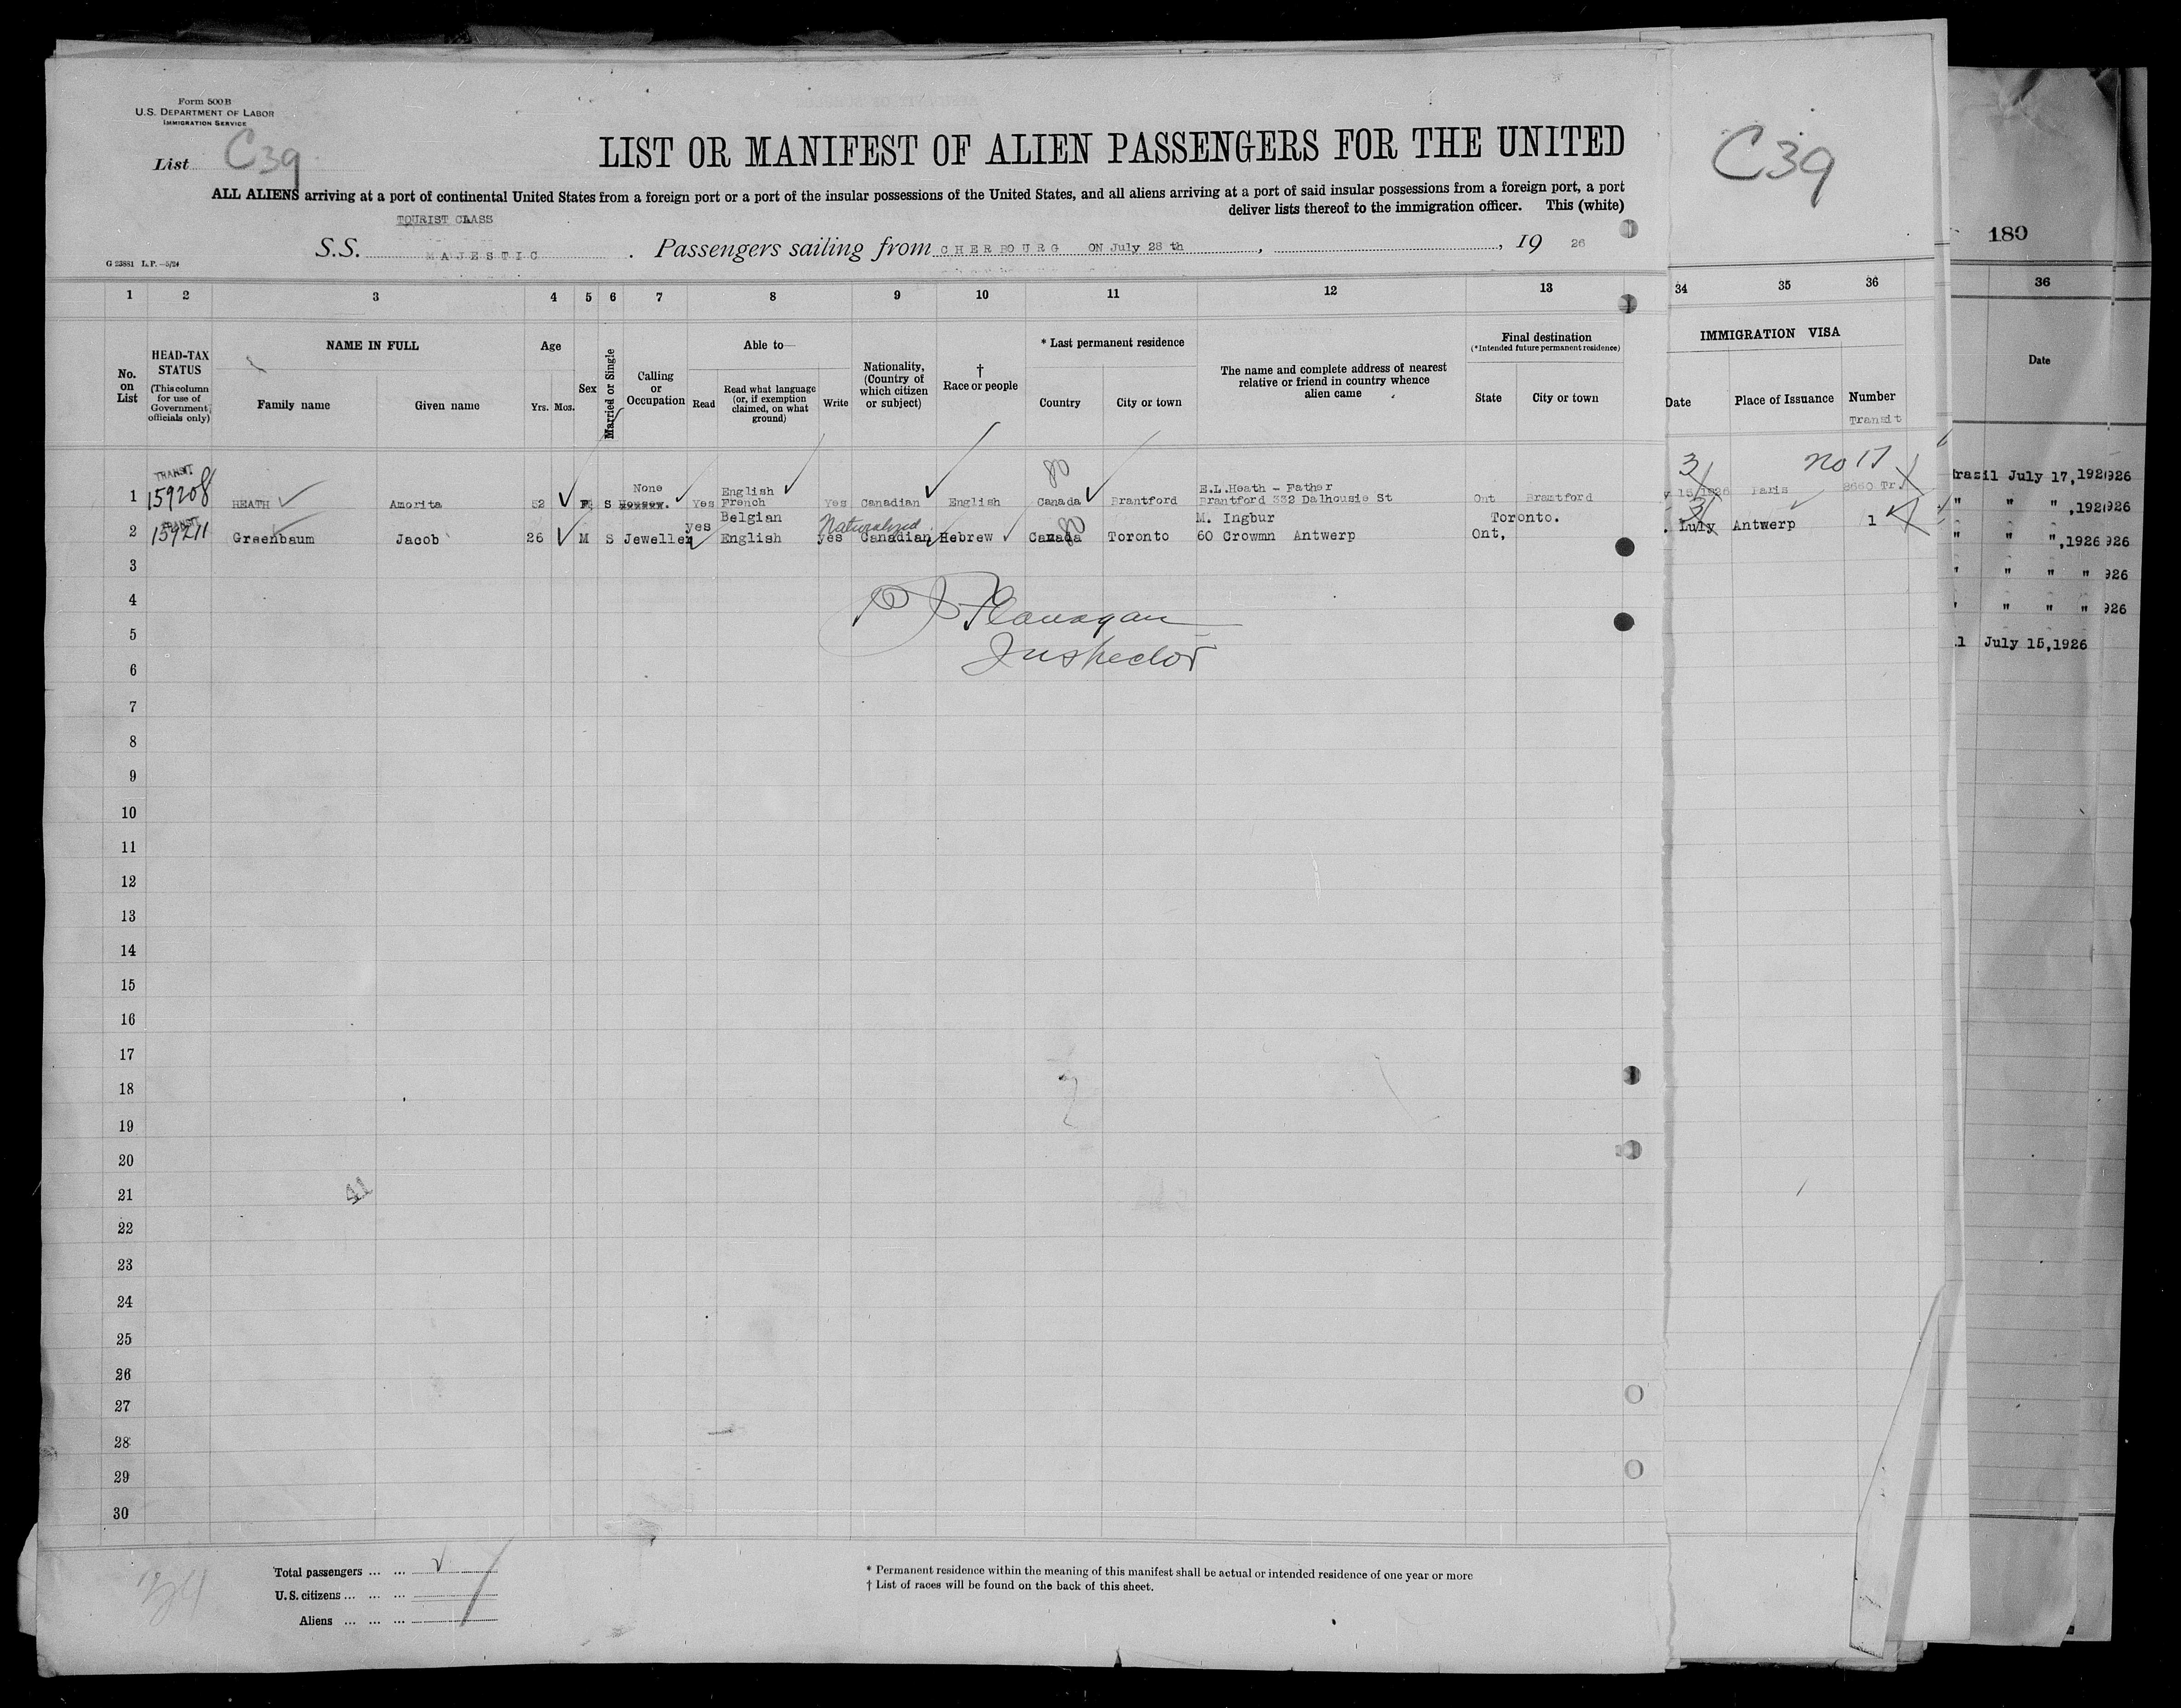 Form 500 B
U.S. DEPARTMENT OF LABOR
IMMIGRATION SERVICE
List C39
LIST OR MANIFEST OF ALIEN PASSENGERS FOR THE UNITED
ALL ALIENS arriving at a port of continental United States from a foreign port or a port of the insular possessions of the United States, and all aliens arriving at a port of said insular possessions from a foreign port, a port
deliver lists thereof to the immigration officer. This (white)
TOURIST CLASS
S.S. MAJESTIC . Passengers sailing from CHERBOURG ON July 28 th , , 19 26
G 23881 L.P.—5/24
1 2 3 4 5 6 7 8 9 10 11 12 13
No. on List
HEAD-TAX STATUS
(This column for use of Government officials only)
NAME IN FULL
Family name Given name
Age
Yrs. Mos.
Sex
Married or Single
Calling or Occupation
Able to—
Read
Read what language (or, if exemption claimed, on what ground)
Write
Nationality, (Country of which citizen or subject)
† Race or people
* Last permanent residence
Country City or town
The name and complete address of nearest relative or friend in country whence alien came
Final destination
(*Intended future permanent residence)
State City or town
C39
34 35 36
IMMIGRATION VISA
Date Place of Issuance Number
Transit
180
36
Date
TRANSIT None English E.L.Heath - Father no 17
1 159208 HEATH Amorita 52 F S Yes French Yes Canadian English Canada Brantford Brantford 332 Dalhousie St Ont Brantford 15 1926 Paris 8660 Tr.
TRANSIT yes Belgian Naturalized M. Ingbur Toronto.
2 159211 Greenbaum Jacob 26 M S Jeweller English yes Canadian Hebrew Canada Toronto 60 Crowmn Antwerp Ont, Luly Antwerp 1
80
80
3
4
5
6
7
8
9
10
11
12
13
14
15
16
17
18
19
20
21
22
23
24
25
26
27
28
29
30
Flanagan
Inspector
rasil July 17,192 926
" " ,192 926
" " ",1926 926
" " " " 926
" " " " 926
l July 15,1926
41
Total passengers ... ...
U.S. citizens ... ... ...
Aliens ... ... ...
* Permanent residence within the meaning of this manifest shall be actual or intended residence of one year or more
† List of races will be found on the back of this sheet.